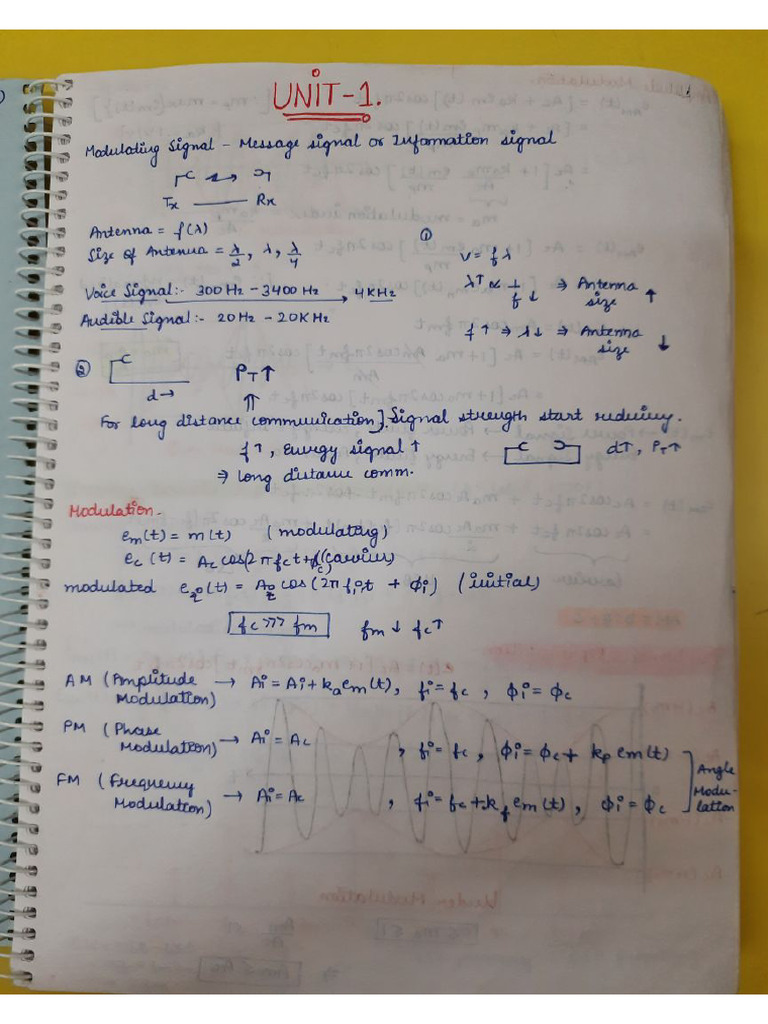 UNIT-1.
Modulating Signal - Message signal or Information signal
Tx Rx
Antenna = f(λ)
Size of Antenna = λ/2, λ, λ/4
Voice Signal:- 300 Hz - 3400 Hz → 4 KHz
Audible Signal:- 20 Hz - 20 KHz
① v = f λ
λ↑ ∝ 1/f ↓ ⇒ Antenna size ↑
f ↑ ⇒ λ↓ ⇒ Antenna size ↓
② d→ P_T ↑
⇑
For long distance communication]. Signal strength start reducing.
f↑, Energy signal ↑ d↑, P_T↑
⇒ long distance comm.
Modulation -
e_m(t) = m(t) (modulating)
e_c(t) = A_c cos(2πf_c t + ϕ_c) (carrier)
modulated e_i(t) = A_i cos(2πf_i t + ϕ_i) (initial)
f_c >>> f_m f_m ↓ f_c ↑
AM (Amplitude Modulation) → A_i = A_i + k_a e_m(t), f_i = f_c, ϕ_i = ϕ_c
PM (Phase Modulation) → A_i = A_c, f_i = f_c, ϕ_i = ϕ_c + k_p e_m(t)
FM (Frequency Modulation) → A_i = A_c, f_i = f_c + k_f e_m(t), ϕ_i = ϕ_c
] Angle Modu-lation